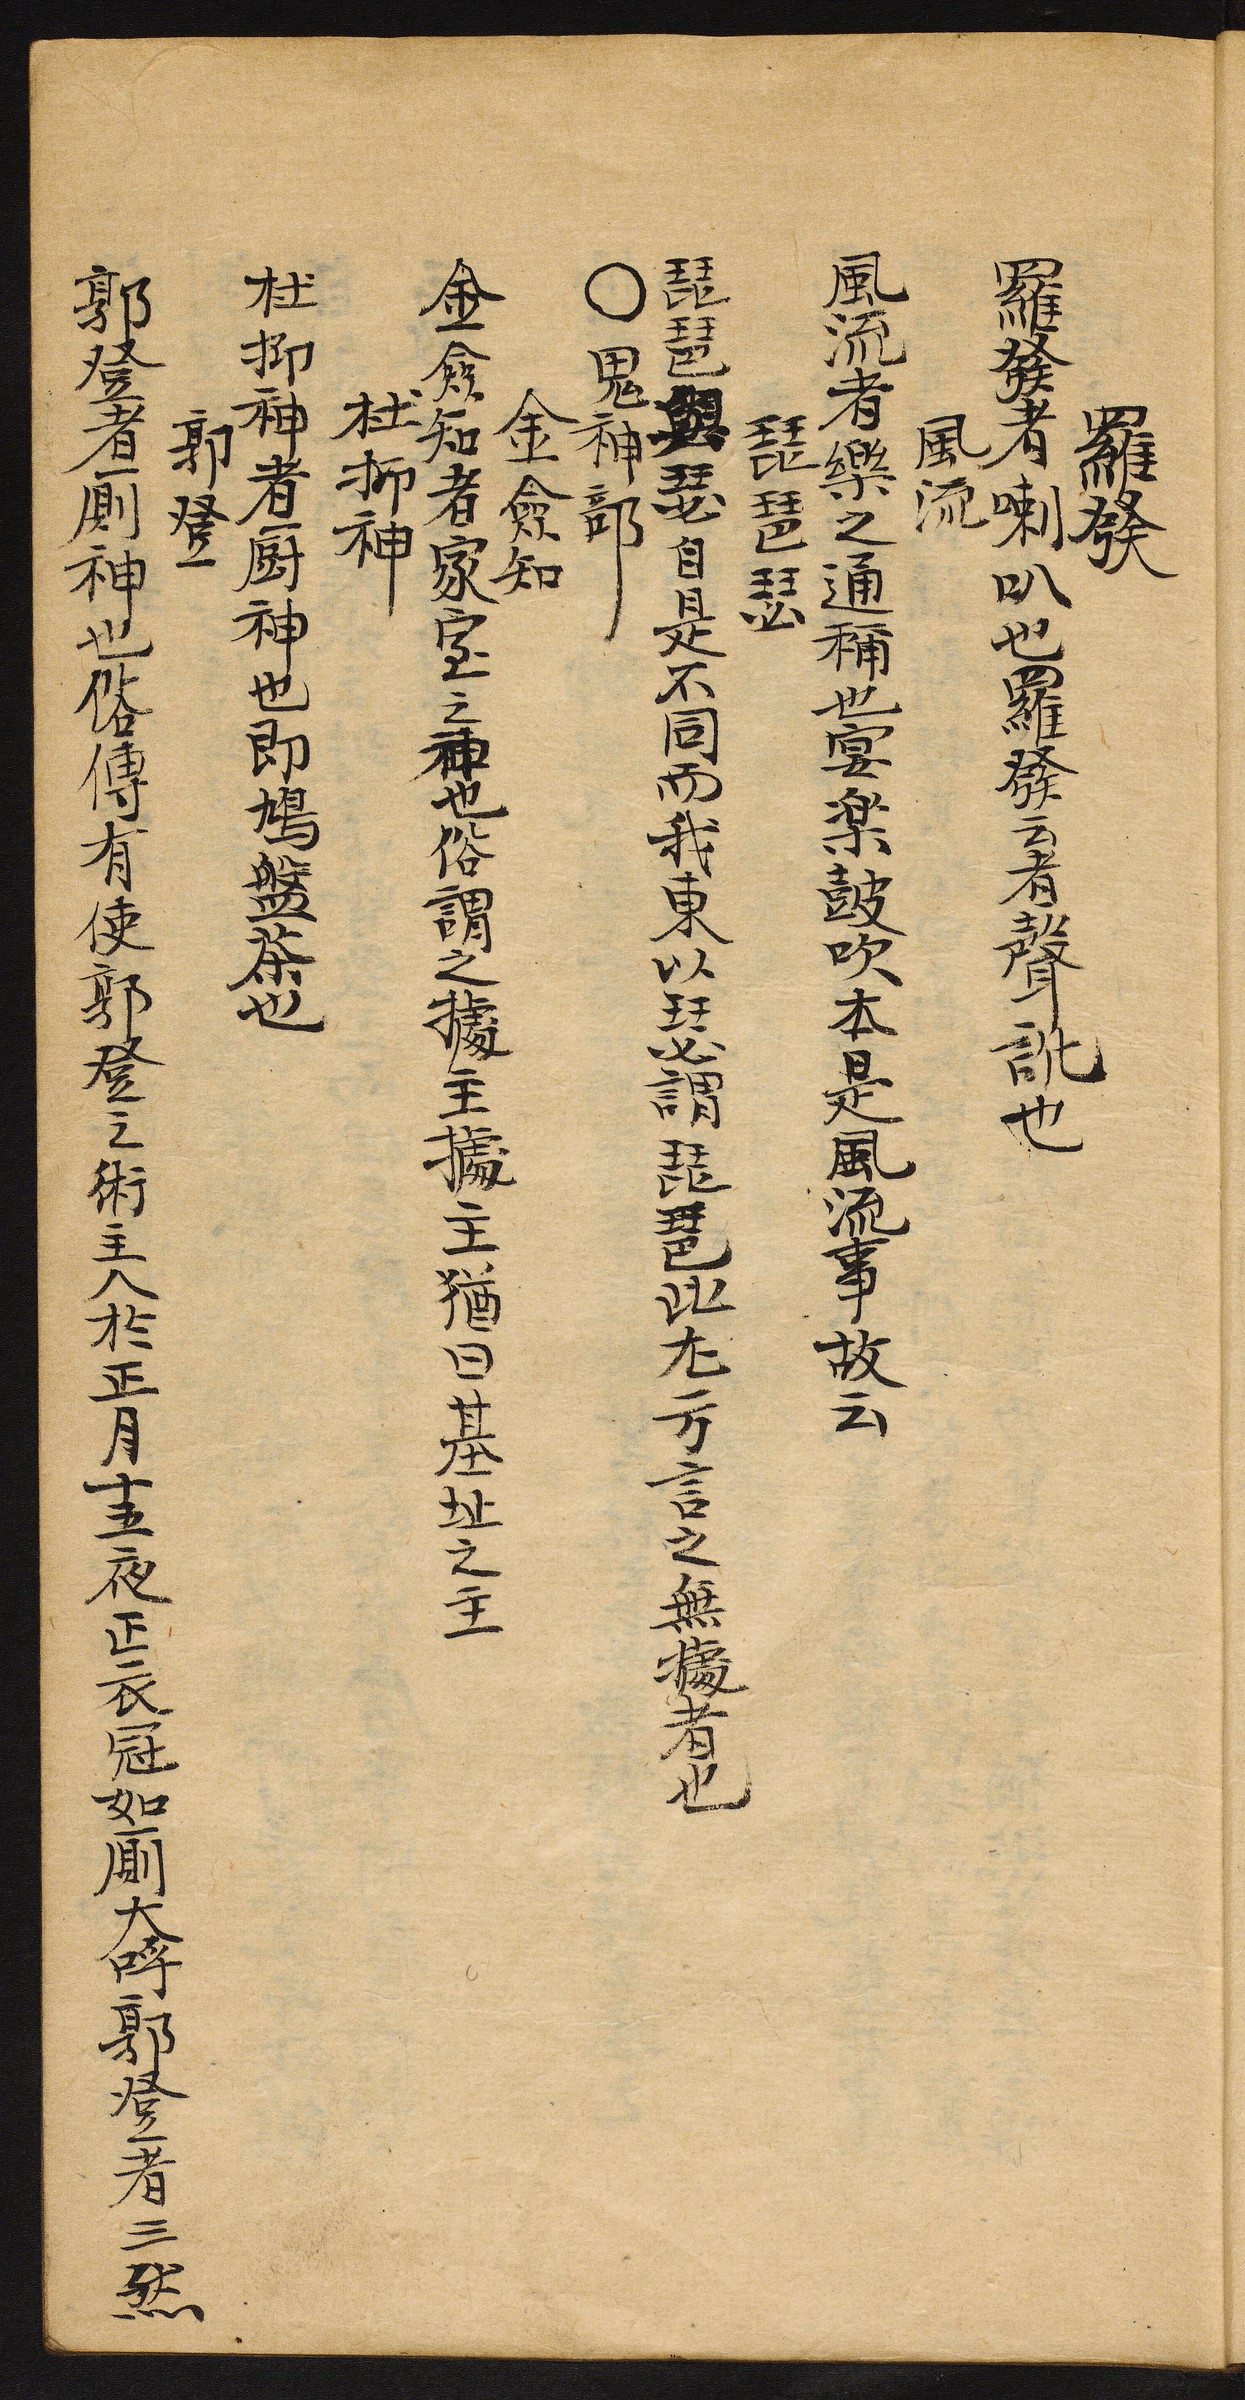 羅發
羅發者喇叭也羅發云者聲訛也
風流
風流者樂之通稱也宴楽鼓吹本是風流事故云
琵琶瑟
琵琶與瑟自是不同而我東以瑟謂琵琶此尤方言之無據者也
○鬼神部
金僉知
金僉知者家室之神也俗謂之據主據主猶曰基址之主
杜抑神
杜抑神者厨神也即鳩盤茶也
郭登
郭登者厠神也俗傳有使郭登之術主人於正月十五夜正衣冠如厠大呼郭登者三然